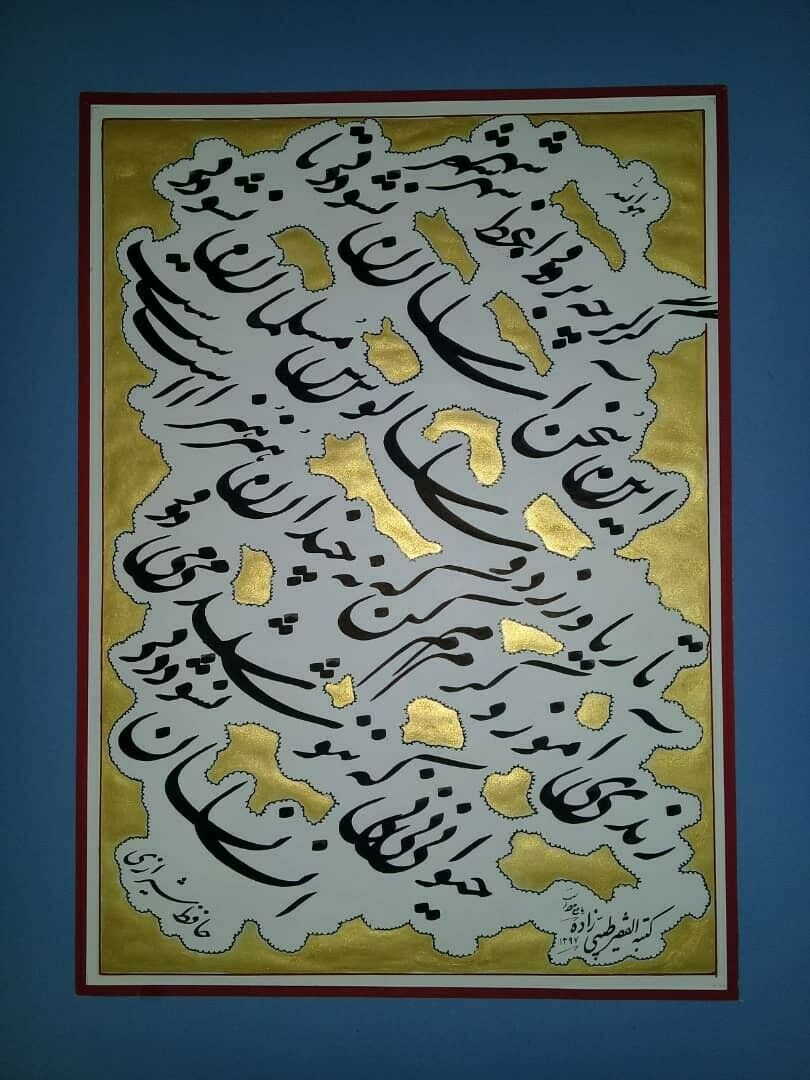 هوالله
گرچه بر واعظ شهر
این سخن آسان نشود
تا ریا ورزد و سالوس مسلمان نشود
رندی آموز و کرم کن که نه چندان هنر است
حیوانی که ننوشد می و
انسان نشود
حافظ شیرازی
کتبه الفقیر طبیبی زاده
۱۳۹۷